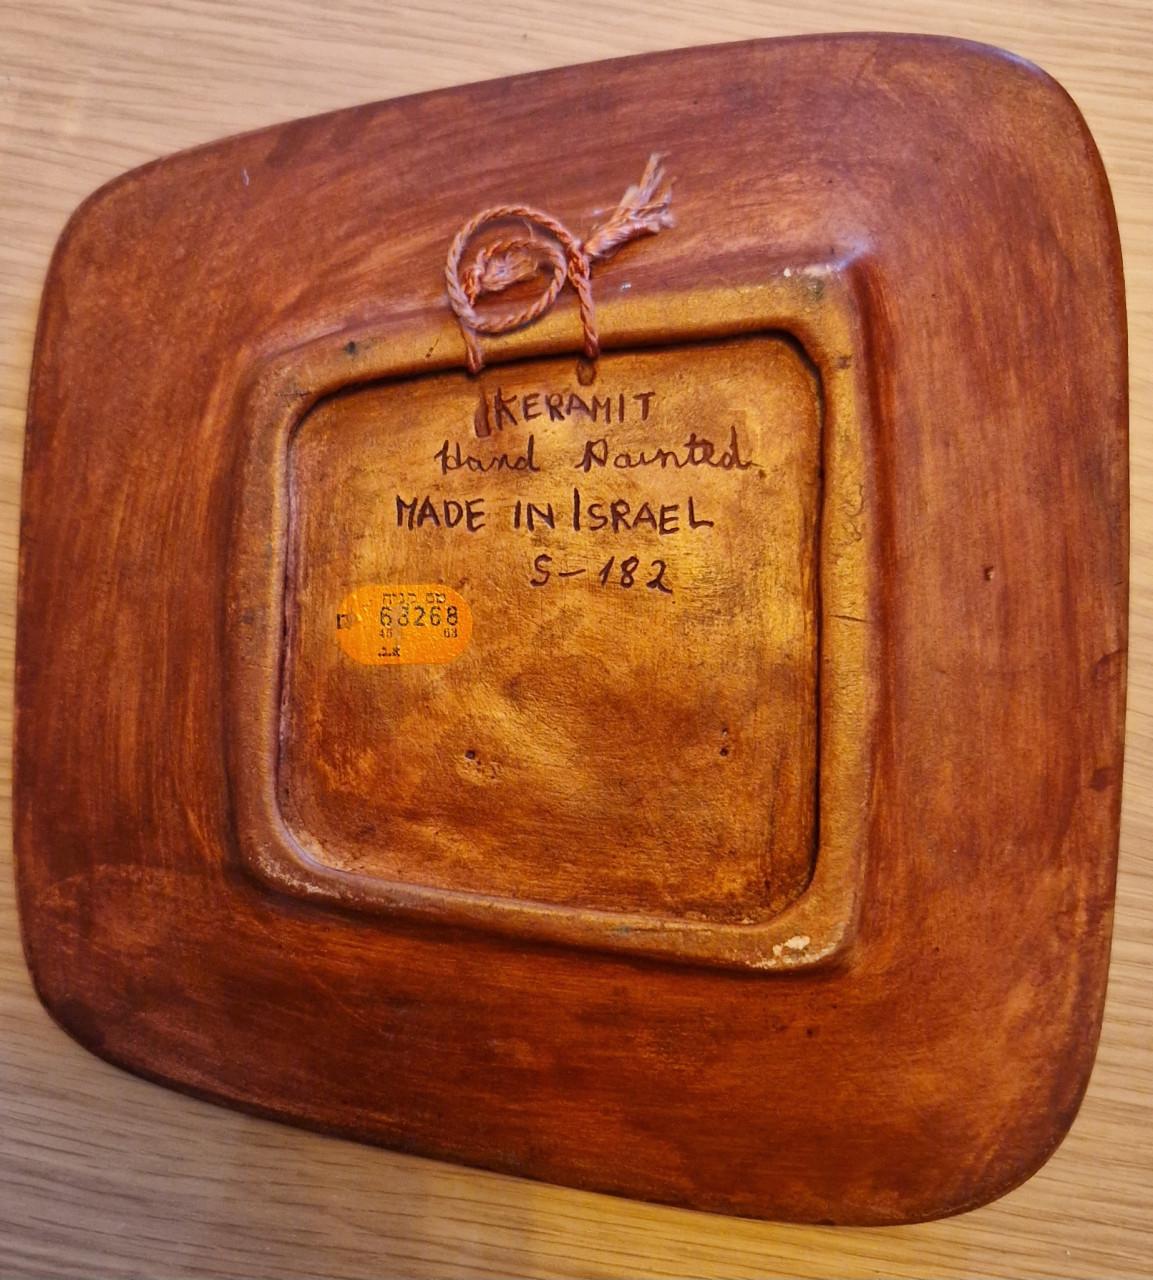 KERAMIT
Hand Painted
MADE IN ISRAEL
S-182
מס קניה
63268
45 63
א.ב.